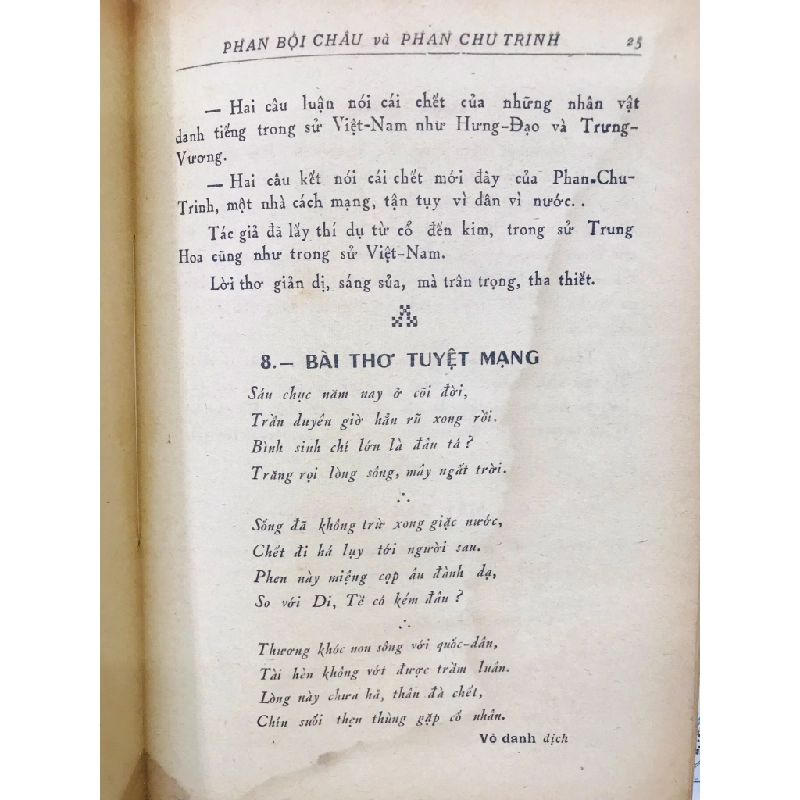 PHAN BỘI CHÂU và PHAN CHU TRINH 25
— Hai câu luận nói cái chết của những nhân vật
danh tiếng trong sử Việt-Nam như Hưng-Đạo và Trưng-
Vương.
— Hai câu kết nói cái chết mới đây của Phan-Chu-
Trinh, một nhà cách mạng, tận tụy vì dân vì nước. .
Tác giả đã lấy thí dụ từ cổ đến kim, trong sử Trung
Hoa cũng như trong sử Việt-Nam.
Lời thơ giản dị, sáng sủa, mà trân trọng, tha thiết.
8.— BÀI THƠ TUYỆT MẠNG
Sáu chục năm nay ở cõi đời,
Trần duyên giờ hẳn rũ xong rồi.
Bình sinh chí lớn là đâu tá ?
Trăng rọi lòng sông, mây ngất trời.
Sống đã không trừ xong giặc nước,
Chết đi há lụy tới người sau.
Phen này miệng cọp âu đành dạ,
So với Di, Tề có kém đâu ?
Thương khóc non sông với quốc-dân,
Tài hèn không vớt được trầm luân.
Lòng này chưa hả, thân đà chết,
Chín suối thẹn thùng gặp cố nhân.
Vô danh dịch